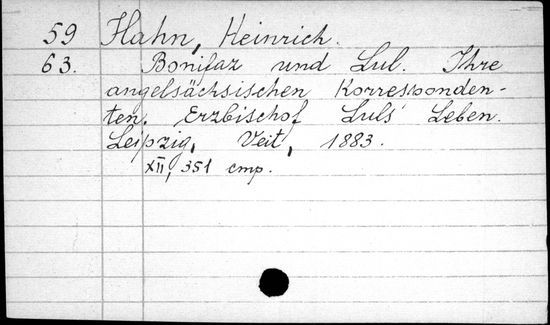 59 Hahn, Heinrich.
63. Bonifaz und Lul. Ihre
angelsächsischen Korresponden-
ten. Erzbischof Luls' Leben.
Leipzig, Veit, 1883.
XII, 351 стр.